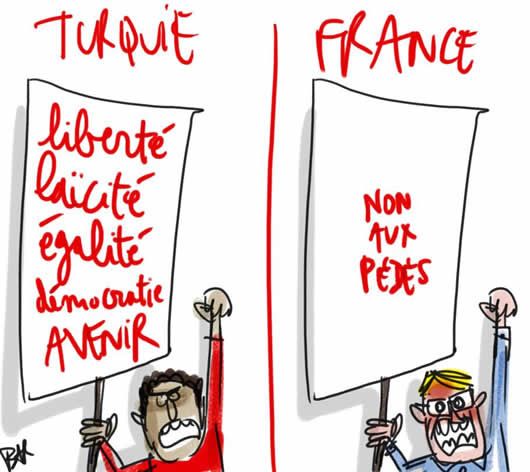 TURQUIE
liberté
laïcité
égalité
démocratie
AVENIR
FRANCE
NON
AUX
PÉDÉS